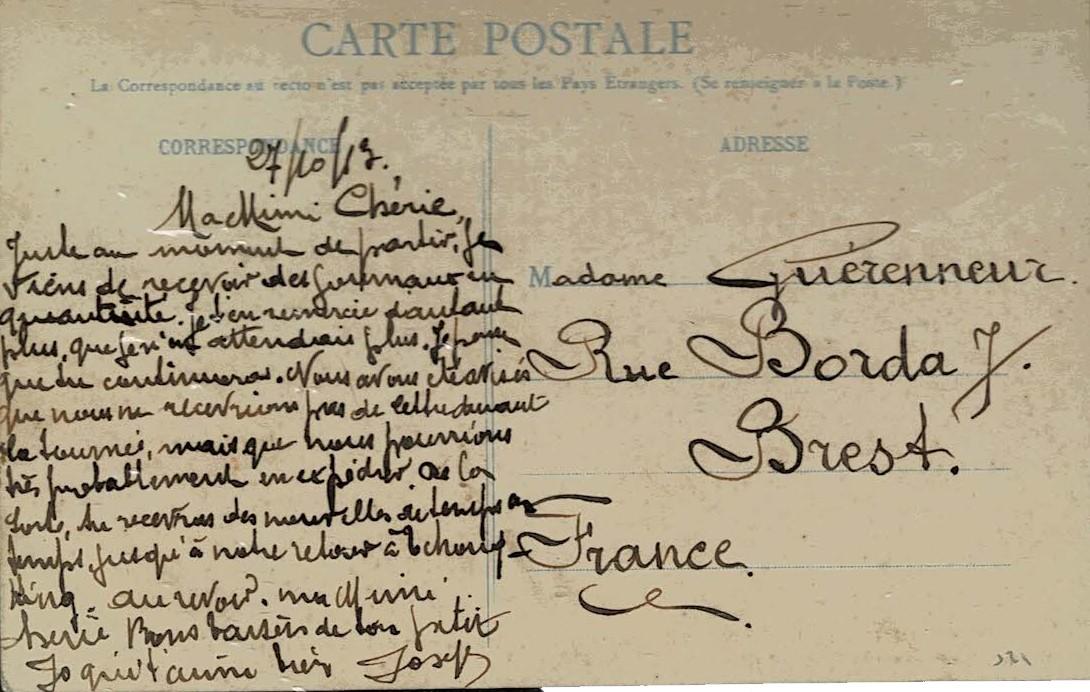 CARTE POSTALE
La Correspondance au recto n'est pas acceptée par tous les Pays Etrangers. (Se renseigner à la Poste.)
CORRESPONDANCE
27/10/13.
Ma Mimi Chérie,
Juste au moment de partir, je
viens de recevoir des journaux en
quantité. je t'en remercie d'autant
plus, que je n'en attendais plus. J'espère
que tu continueras. Nous avons été avisés
que nous ne recevrions pas de lettre durant
la tournée, mais que nous pourrions
très probablement en expédier. de la
sorte, tu recevras des nouvelles de temps en
temps, jusqu'à notre retour à Tchong-
King. au revoir. ma Mimi
cherie Bons baisers de ton petit
Jo qui t'aime très Josep
ADRESSE
Madame Guérenneur.
Rue Borda 7.
Brest.
France.